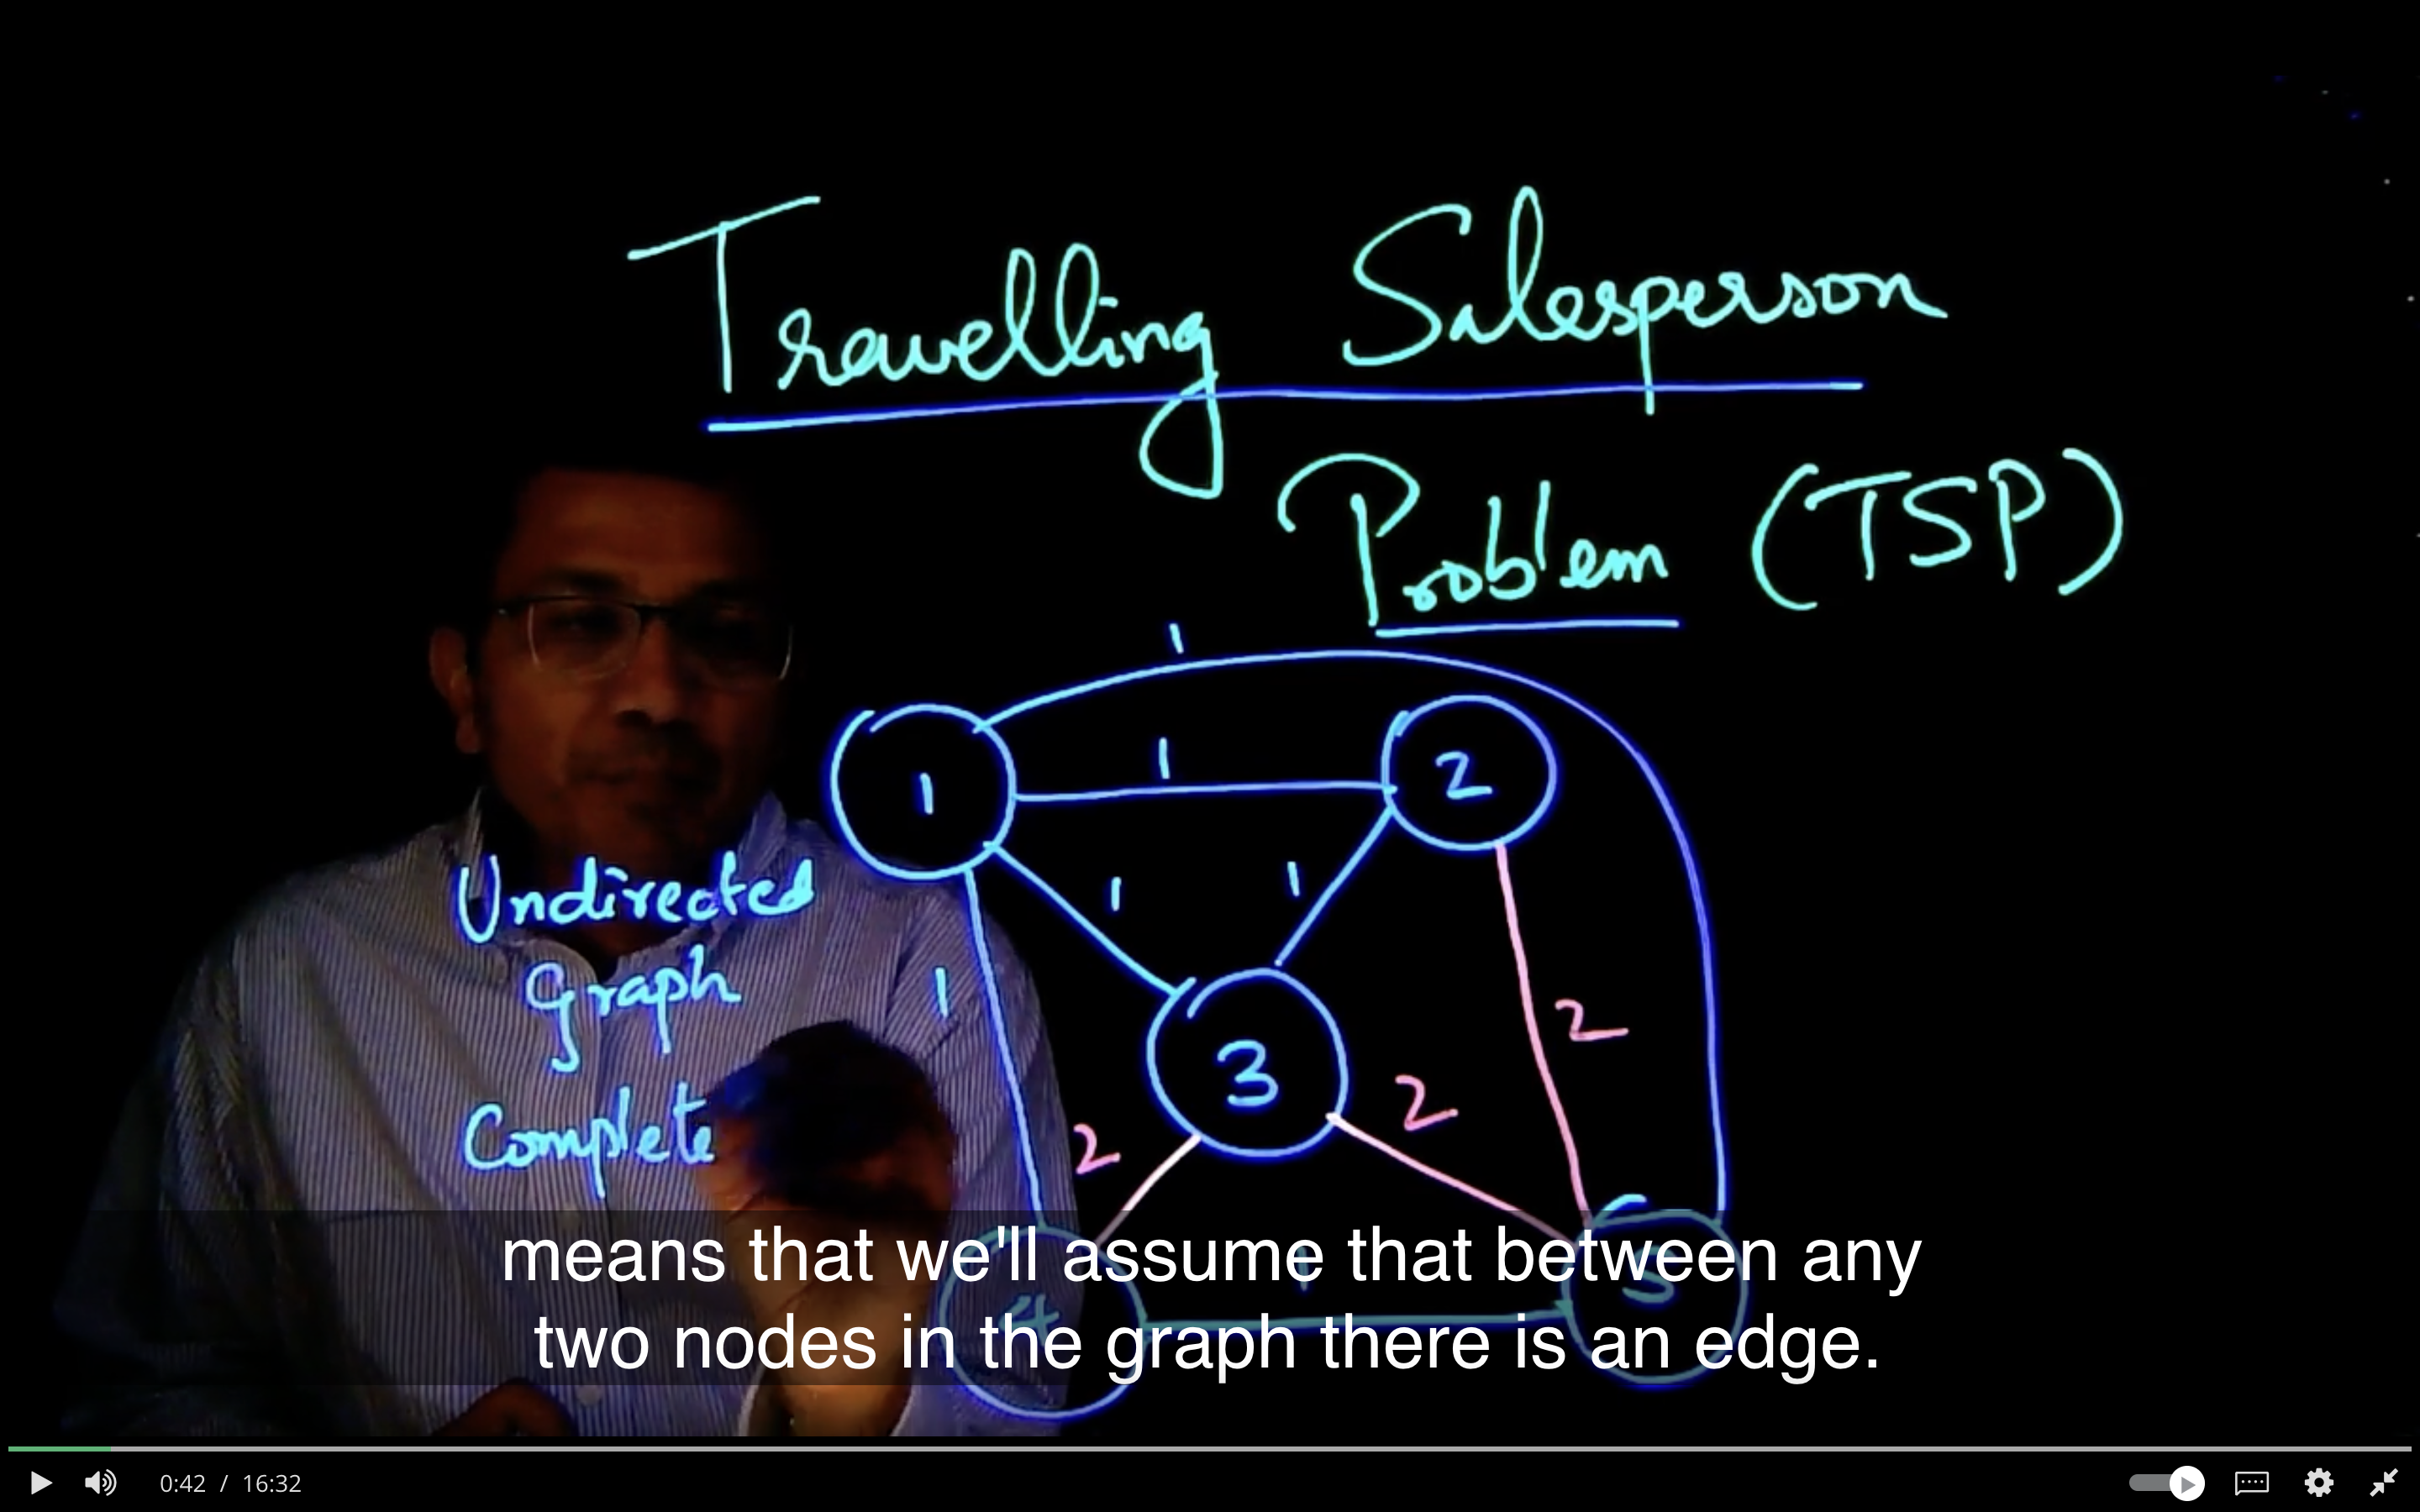 Travelling Salesperson
Problem (TSP)
1
1
1
2
Undirected
Graph
Complete
1
1
1
3
2
2
2
1
4
5
means that we'll assume that between any
two nodes in the graph there is an edge.
0:42 / 16:32